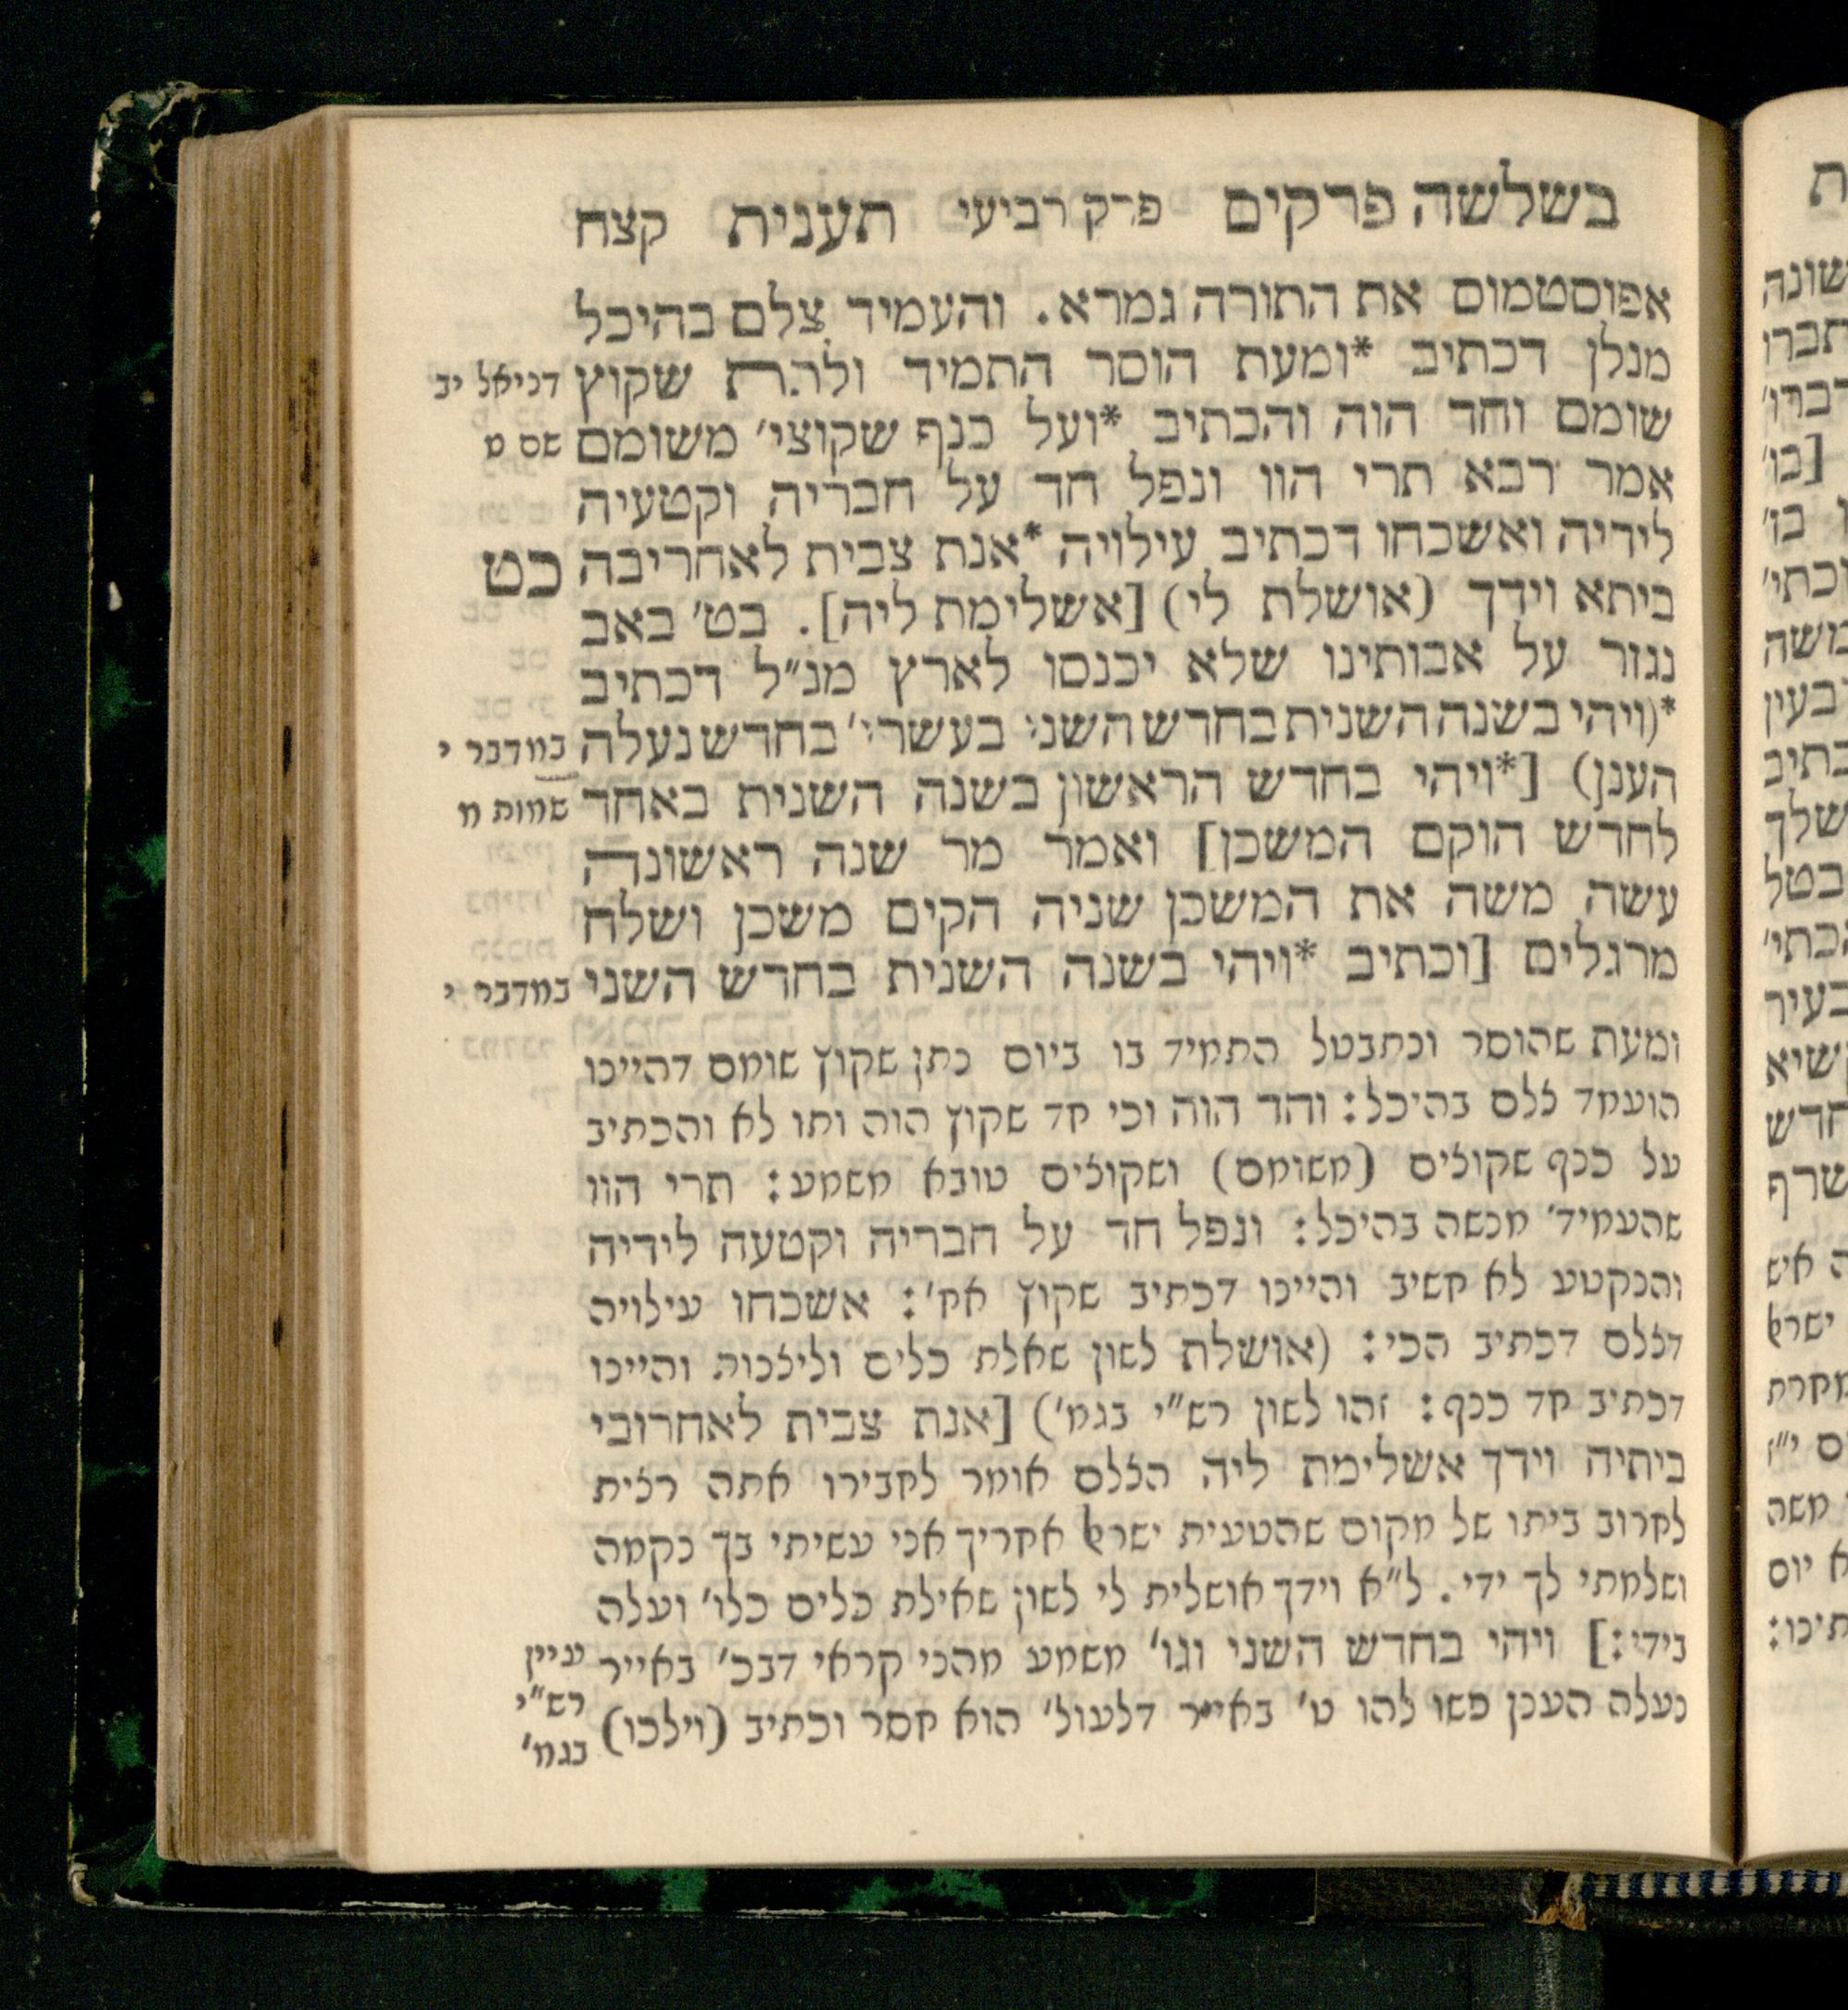 בשלשה פרקים פרק רביעי תענית קצח
אפוסטמוס את התורה גמרא. והעמיד צלם בהיכל
מנלן דכתיב *ומעת הוסר התמיד ולתת שקוץ דניאל יב
שומם וחד הוה והכתיב *ועל כנף שקוצי' משומם שם ט
אמר רבא תרי הוו ונפל חד על חבריה וקטעיה
לידיה ואשכחו דכתיב עילויה *אנת צבית לאחריבה כט
ביתא וידך (אושלת לי) [אשלימת ליה]. בט' באב
נגזר על אבותינו שלא יכנסו לארץ מנ"ל דכתיב
*(ויהי בשנה השנית בחדש השני בעשרי' בחדש נעלה במדבר י
הענן) [*ויהי בחדש הראשון בשנה השנית באחד שמות מ
לחדש הוקם המשכן] ואמר מר שנה ראשונה
עשה משה את המשכן שניה הקים משכן ושלח
מרגלים [וכתיב *ויהי בשנה השנית בחדש השני במדבר י
ומעת שהוסר ונתבטל התמיד בו ביום נתן שקוץ שומם דהיינו
הועמד צלם בהיכל: וחד הוה וכי חד שקוץ הוה ותו לא והכתיב
על כנף שקוצים (משומם) ושקוצים טובא משמע: תרי הוו
שהעמיד' מנשה בהיכל: ונפל חד על חבריה וקטעה לידיה
והנקטע לא חשיב והיינו דכתיב שקוץ אח': אשכחו עילויה
דצלם דכתיב הכי: (אושלת לשון שאלת כלים וליצנות והיינו
דכתיב חד כנף: זהו לשון רש"י בגמ') [אנת צבית לאחרובי
ביתיה וידך אשלימת ליה הצלם אומר לחבירו אתה רצית
לחרוב ביתו של מקום שהטעית ישראל אחריך אני עשיתי בך נקמה
ושלמתי לך ידי. ל"א וידך אושלית לי לשון שאילת כלים כלו' ועלה
בידי:] ויהי בחדש השני וגו' משמע מהכי קראי דבכ' באייר עיין
נעלה הענן פשו להו ט' באייר דלעול' הוא חסר וכתיב (וילכו) רש"י
בגמ'